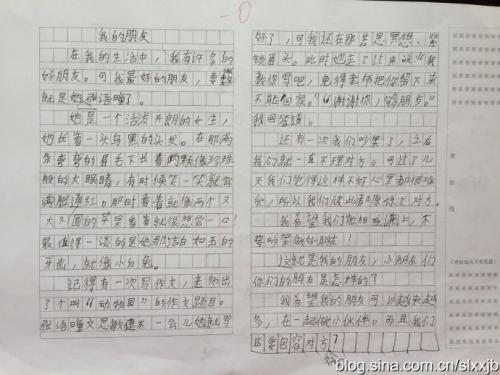 -0
我的朋友
在我的生活中，我有许多的
好朋友。可我最好的朋友，要数
就是张语瞳了。
她是一个活波开朗的女生，
她长着一头乌黑的头发。在那两
条弯弯的眉毛下长着两颗像珍珠
般的大眼睛，有时候笑一笑就会
满脸通红。那时看着就像两个又
大又圆的苹果看着就很想尝一口！
最值得一谈的是她那洁白如玉的
牙齿，就像小白兔。
记得有一次写作文，老师出
了个叫“动物园”的作文题目。
张语瞳文思敏捷不一会儿她就写
好了，可我还在那苦思冥想、紧
锁眉头。此时她走了过来说“我
教你写吧，免得老师把你留下来
不能回家。”“谢谢你，够朋友。”
我回答道。
还有一次我们吵架了，之后
我们就一直不理对方。可过了几
天我们觉得这样不好心里都很难
受，所以我们彼此都原谅了对方。
我希望我们能相互谦让，不
要吵架做好朋友！
这就是我的朋友，小朋友们
你们的朋友是怎样的？
我希望我的朋友可以越来越
多，在一起做小伙伴。而且我们
要包容对方？
blog.sina.com.cn/slxxjb